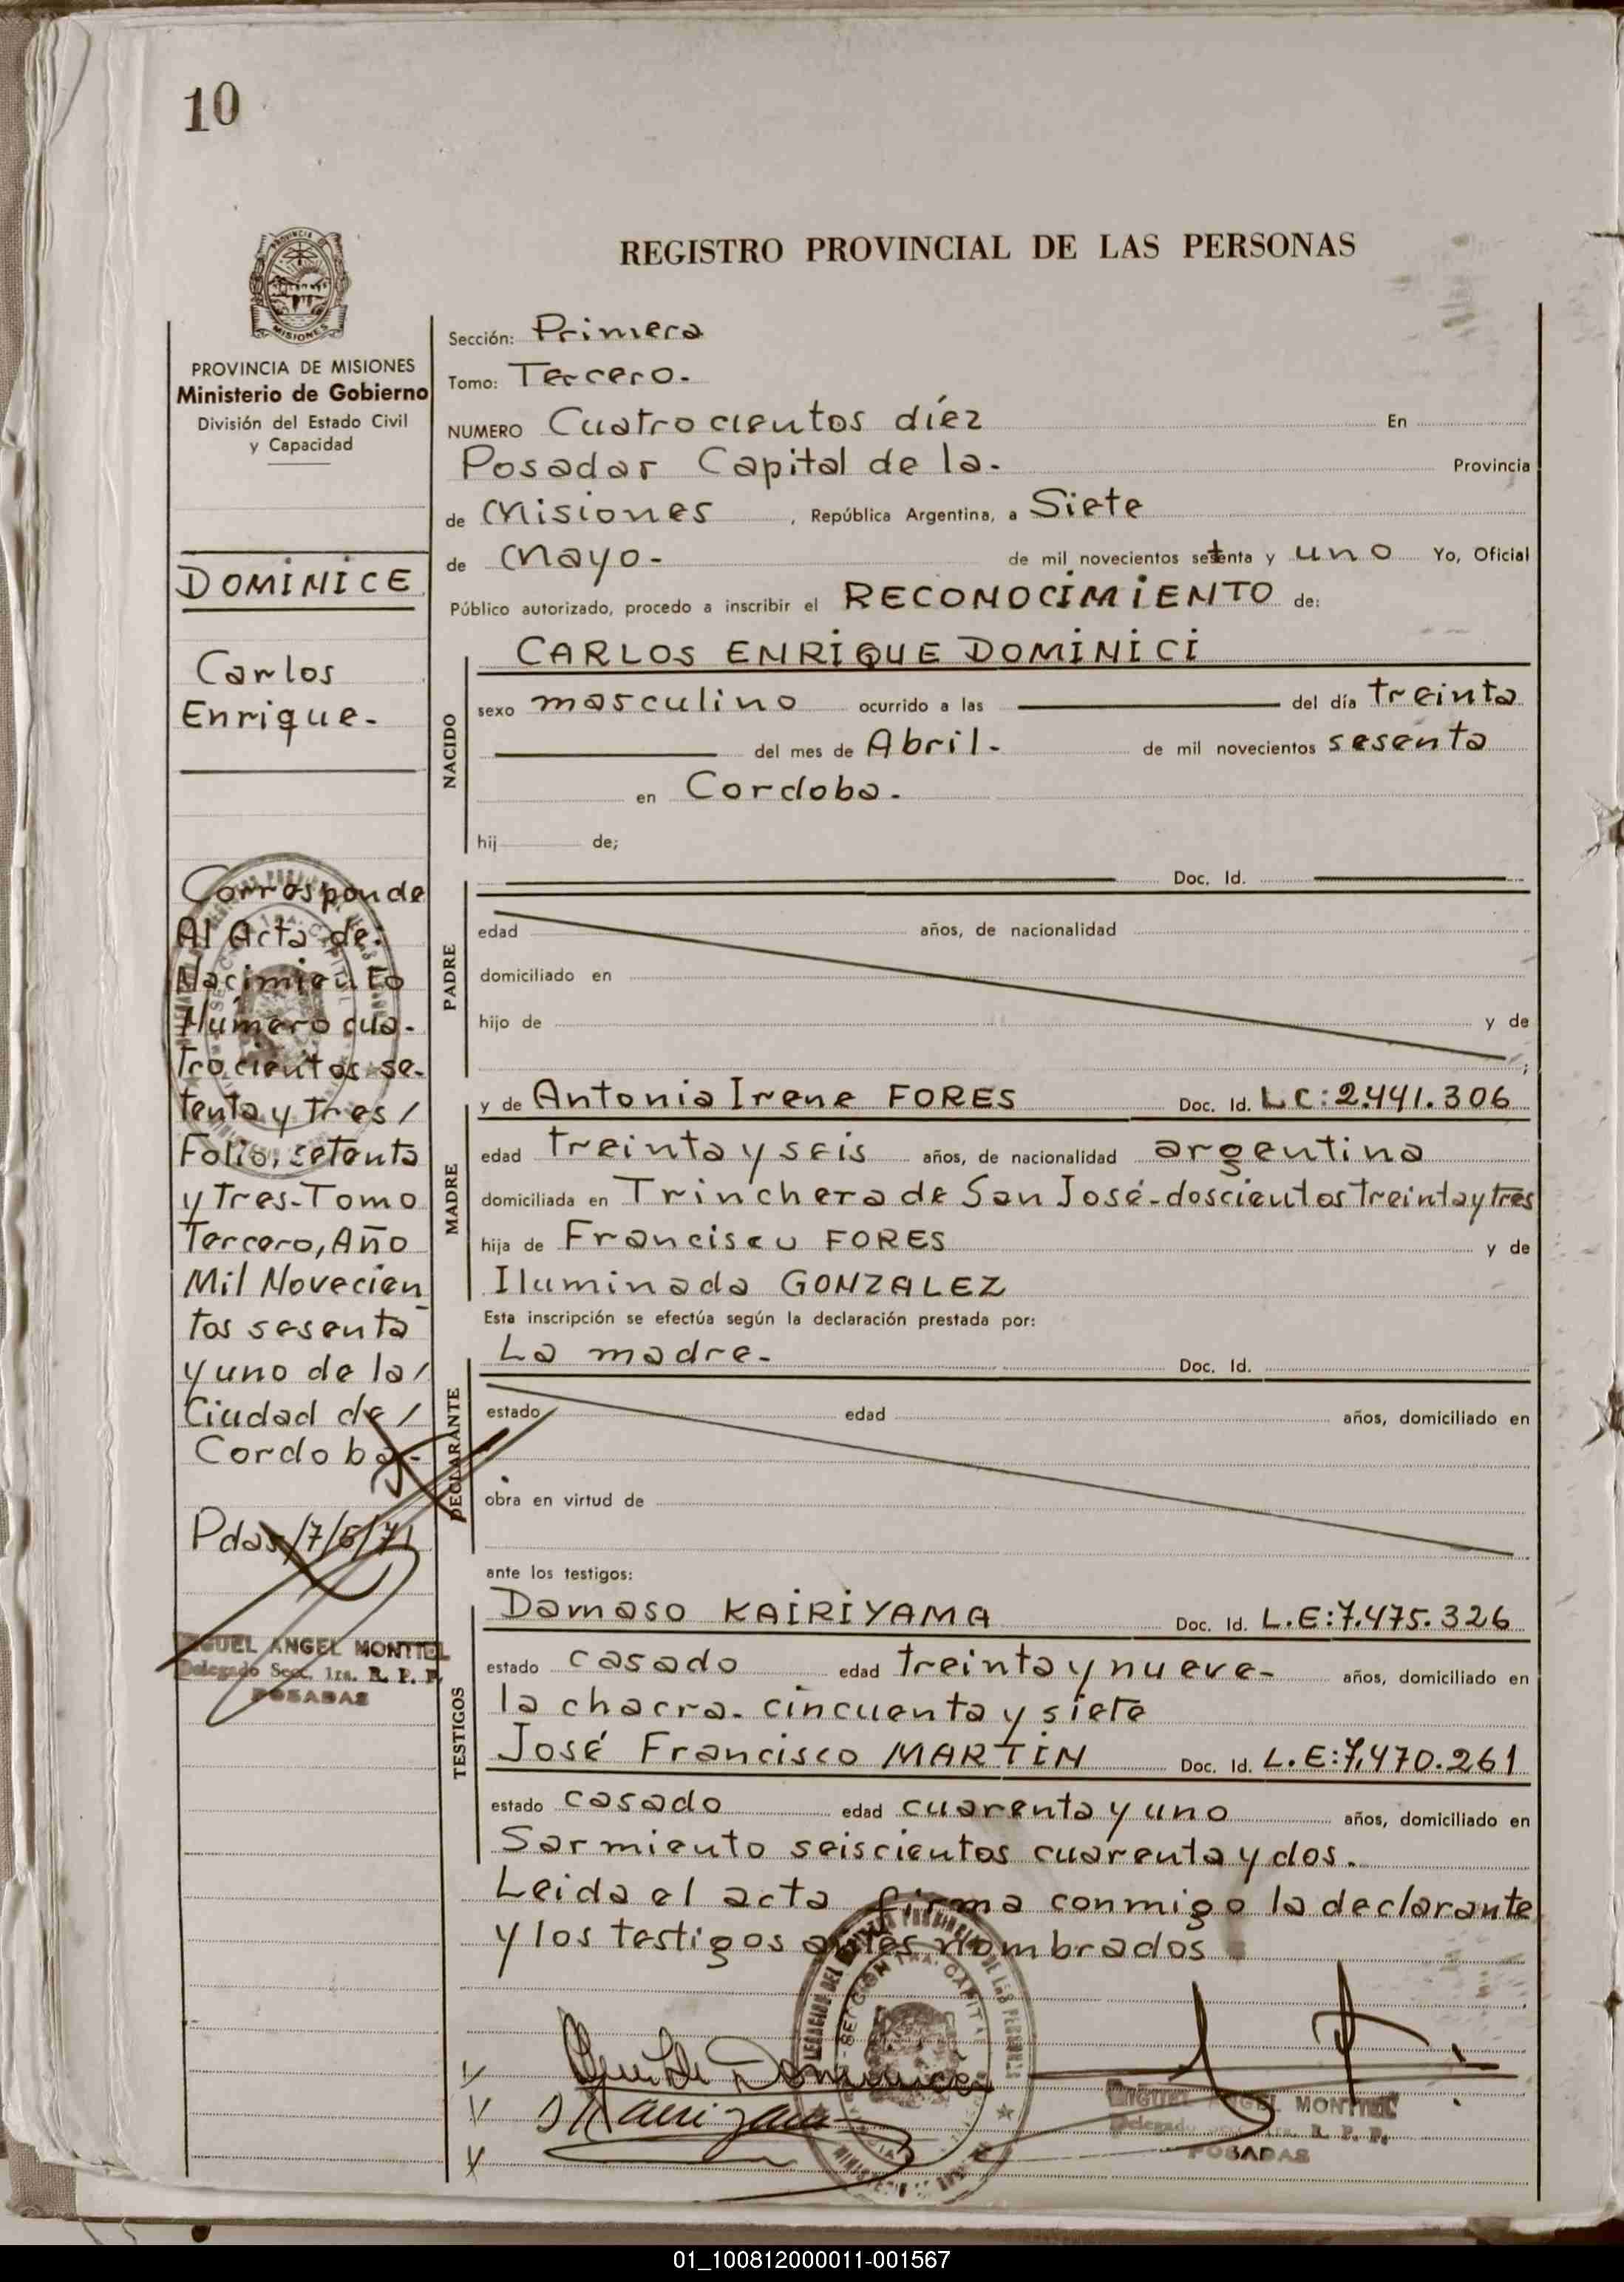 10
REGISTRO PROVINCIAL DE LAS PERSONAS
MISIONES
PROVINCIA DE MISIONES
Ministerio de Gobierno
División del Estado Civil
y Capacidad
DOMINICE
Carlos
Enrique.-
Corresponde
Al Acta de:
Nacimiento
Número cua-
trocientos se-
tenta y tres/
Folio, setenta
y tres-Tomo
Tercero, Año
Mil Novecien
tos sesenta
y uno de la/
Ciudad de/
Cordoba-
Pdas/7/5/71
MIGUEL ANGEL MONTIEL
Delegado Secc. 1ra. R. P. P.
POSADAS
Sección: Primera
Tomo: Tercero.-
NUMERO Cuatrocientos díez En
Posadas Capital de la.- Provincia
de Misiones , República Argentina, a Siete
de Mayo- de mil novecientos setenta y uno Yo, Oficial
Público autorizado, procedo a inscribir el RECONOCIMIENTO de:
NACIDO
CARLOS ENRIQUE DOMINICI
sexo masculino ocurrido a las del día treinta
del mes de Abril.- de mil novecientos sesenta
en Cordoba.-
hij de;
PADRE
Doc. Id.
edad años, de nacionalidad
domiciliado en
hijo de y de
;
MADRE
y de Antonia Irene FORES Doc. Id. L.C:2.441.306
edad treinta y seis años, de nacionalidad argentina
domiciliada en Trinchera de San José-doscientos treinta y tres
hija de Francisco FORES y de
Iluminada GONZALEZ
Esta inscripción se efectúa según la declaración prestada por:
DECLARANTE
La madre.- Doc. Id.
estado edad años, domiciliado en
obra en virtud de
ante los testigos:
TESTIGOS
Damaso KAIRIYAMA Doc. Id. L.E:7.475.326
estado casado edad treinta y nueve- años, domiciliado en
la chacra. cincuenta y siete
José Francisco MARTIN Doc. Id. L.E:7.470.261
estado casado edad cuarenta y uno años, domiciliado en
Sarmiento seiscientos cuarenta y dos.
Leida el acta firma conmigo la declarante
y los testigos antes nombrados
MIGUEL ANGEL MONTIEL
Delegado R. P. P.
POSADAS
01_100812000011-001567